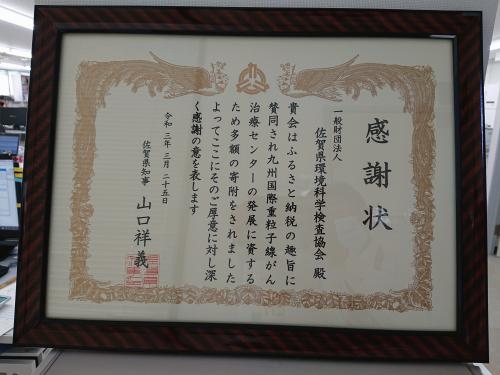 感謝状
一般財団法人
佐賀県環境科学検査協会 殿
貴会はふるさと納税の趣旨に
賛同され九州国際重粒子線がん
治療センターの発展に資する
ため多額の寄附をされました
よってここにそのご厚意に対し深
く感謝の意を表します
令和三年三月二十五日
佐賀県知事 山口祥義